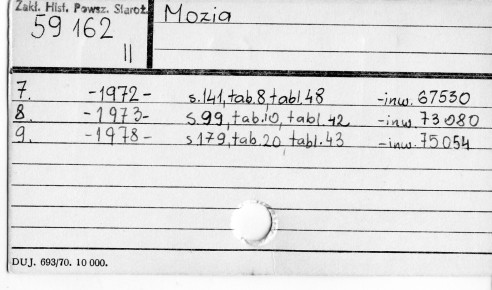 Zakł. Hist. Powsz. Staroż.
59 162
II
Mozia
7. -1972- s.141, tab.8, tabl.48 -inw. 67530
8. -1973- s.99, tab.10, tabl.42 -inw. 73080
9. -1978- s179, tab.20, tabl.43 -inw. 75054
DUJ. 693/70. 10 000.